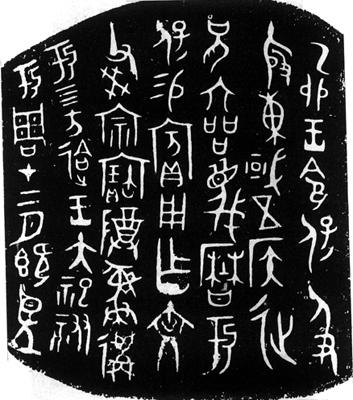 乙卯王令保及
殷東或五侯征
兄六品蔑曆于
保易賓用乍文
父癸宗寶尊彝遘
于四方迨王大祀祓
于周才二月既望